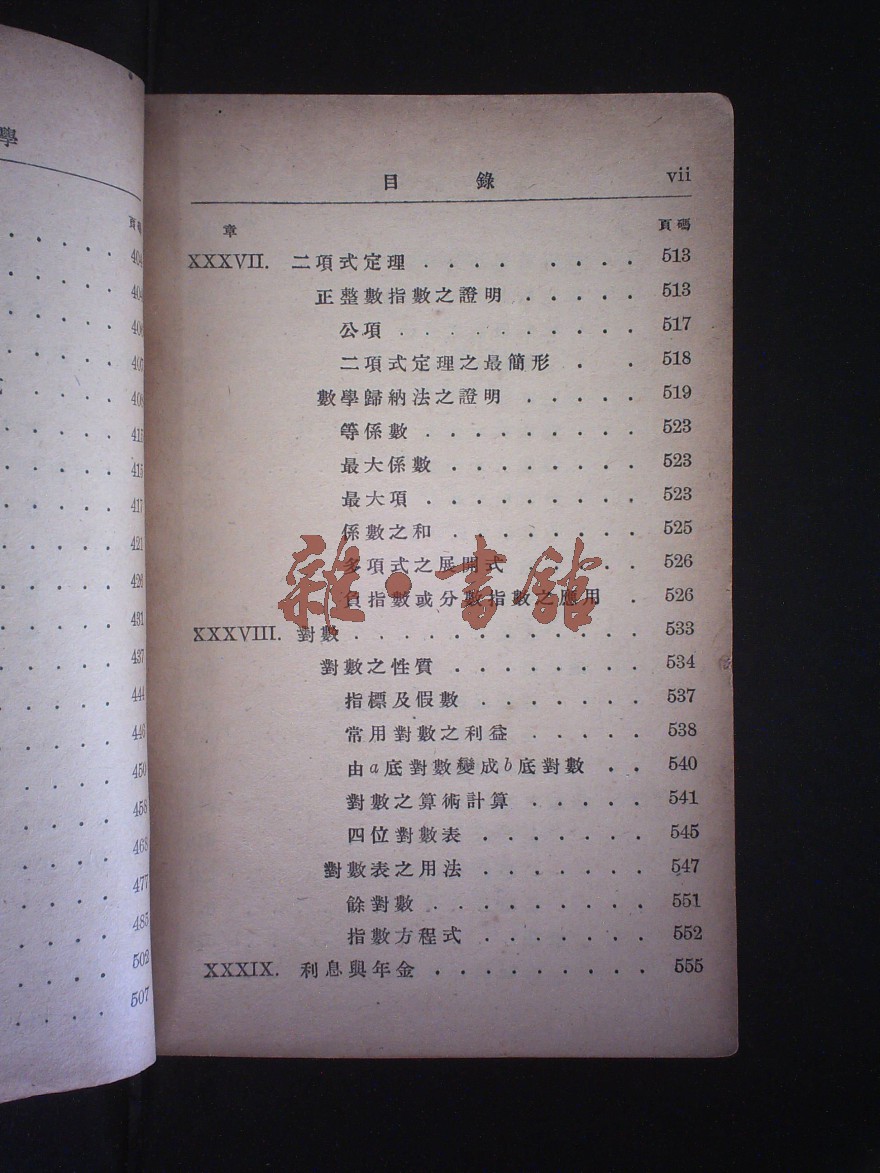 學
頁碼
404
404
406
407
408
415
415
417
421
426
431
437
444
446
450
458
468
477
485
502
507
目 錄 vii
章 頁碼
XXXVII. 二項式定理 . . . . . . . . 513
正整數指數之證明 . . . . . 513
公項 . . . . . . . . . . 517
二項式定理之最簡形 . . 518
數學歸納法之證明 . . . . . 519
等係數 . . . . . . . . . 523
最大係數 . . . . . . . . 523
最大項 . . . . . . . . . 523
係數之和 . . . . . . . . 525
多項式之展開式 . . . . . 526
負指數或分數指數之應用 . 526
XXXVIII. 對數 . . . . . . . . . . . . 533
對數之性質 . . . . . . . . 534
指標及假數 . . . . . . . 537
常用對數之利益 . . . . . 538
由a底對數變成b底對數 . . 540
對數之算術計算 . . . . . 541
四位對數表 . . . . . . . 545
對數表之用法 . . . . . . . 547
餘對數 . . . . . . . . . 551
指數方程式 . . . . . . . 552
XXXIX. 利息與年金 . . . . . . . . . 555
雜·書館